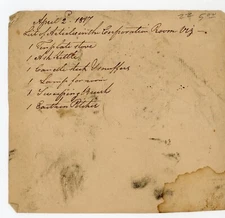 April 2 1897
List of Articles in the Corporation Room Viz
1 Template stove
1 Ash Kettle
1 Candle stick & snuffers
1 Lamp for room
1 Sweeping Brush
1 Earthen Pitcher